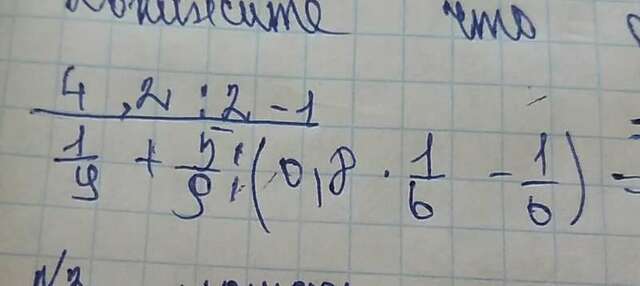 что
4,2 : 2 - 1
1/9 + 5/9 : (0,8 · 1/6 - 1/6) =